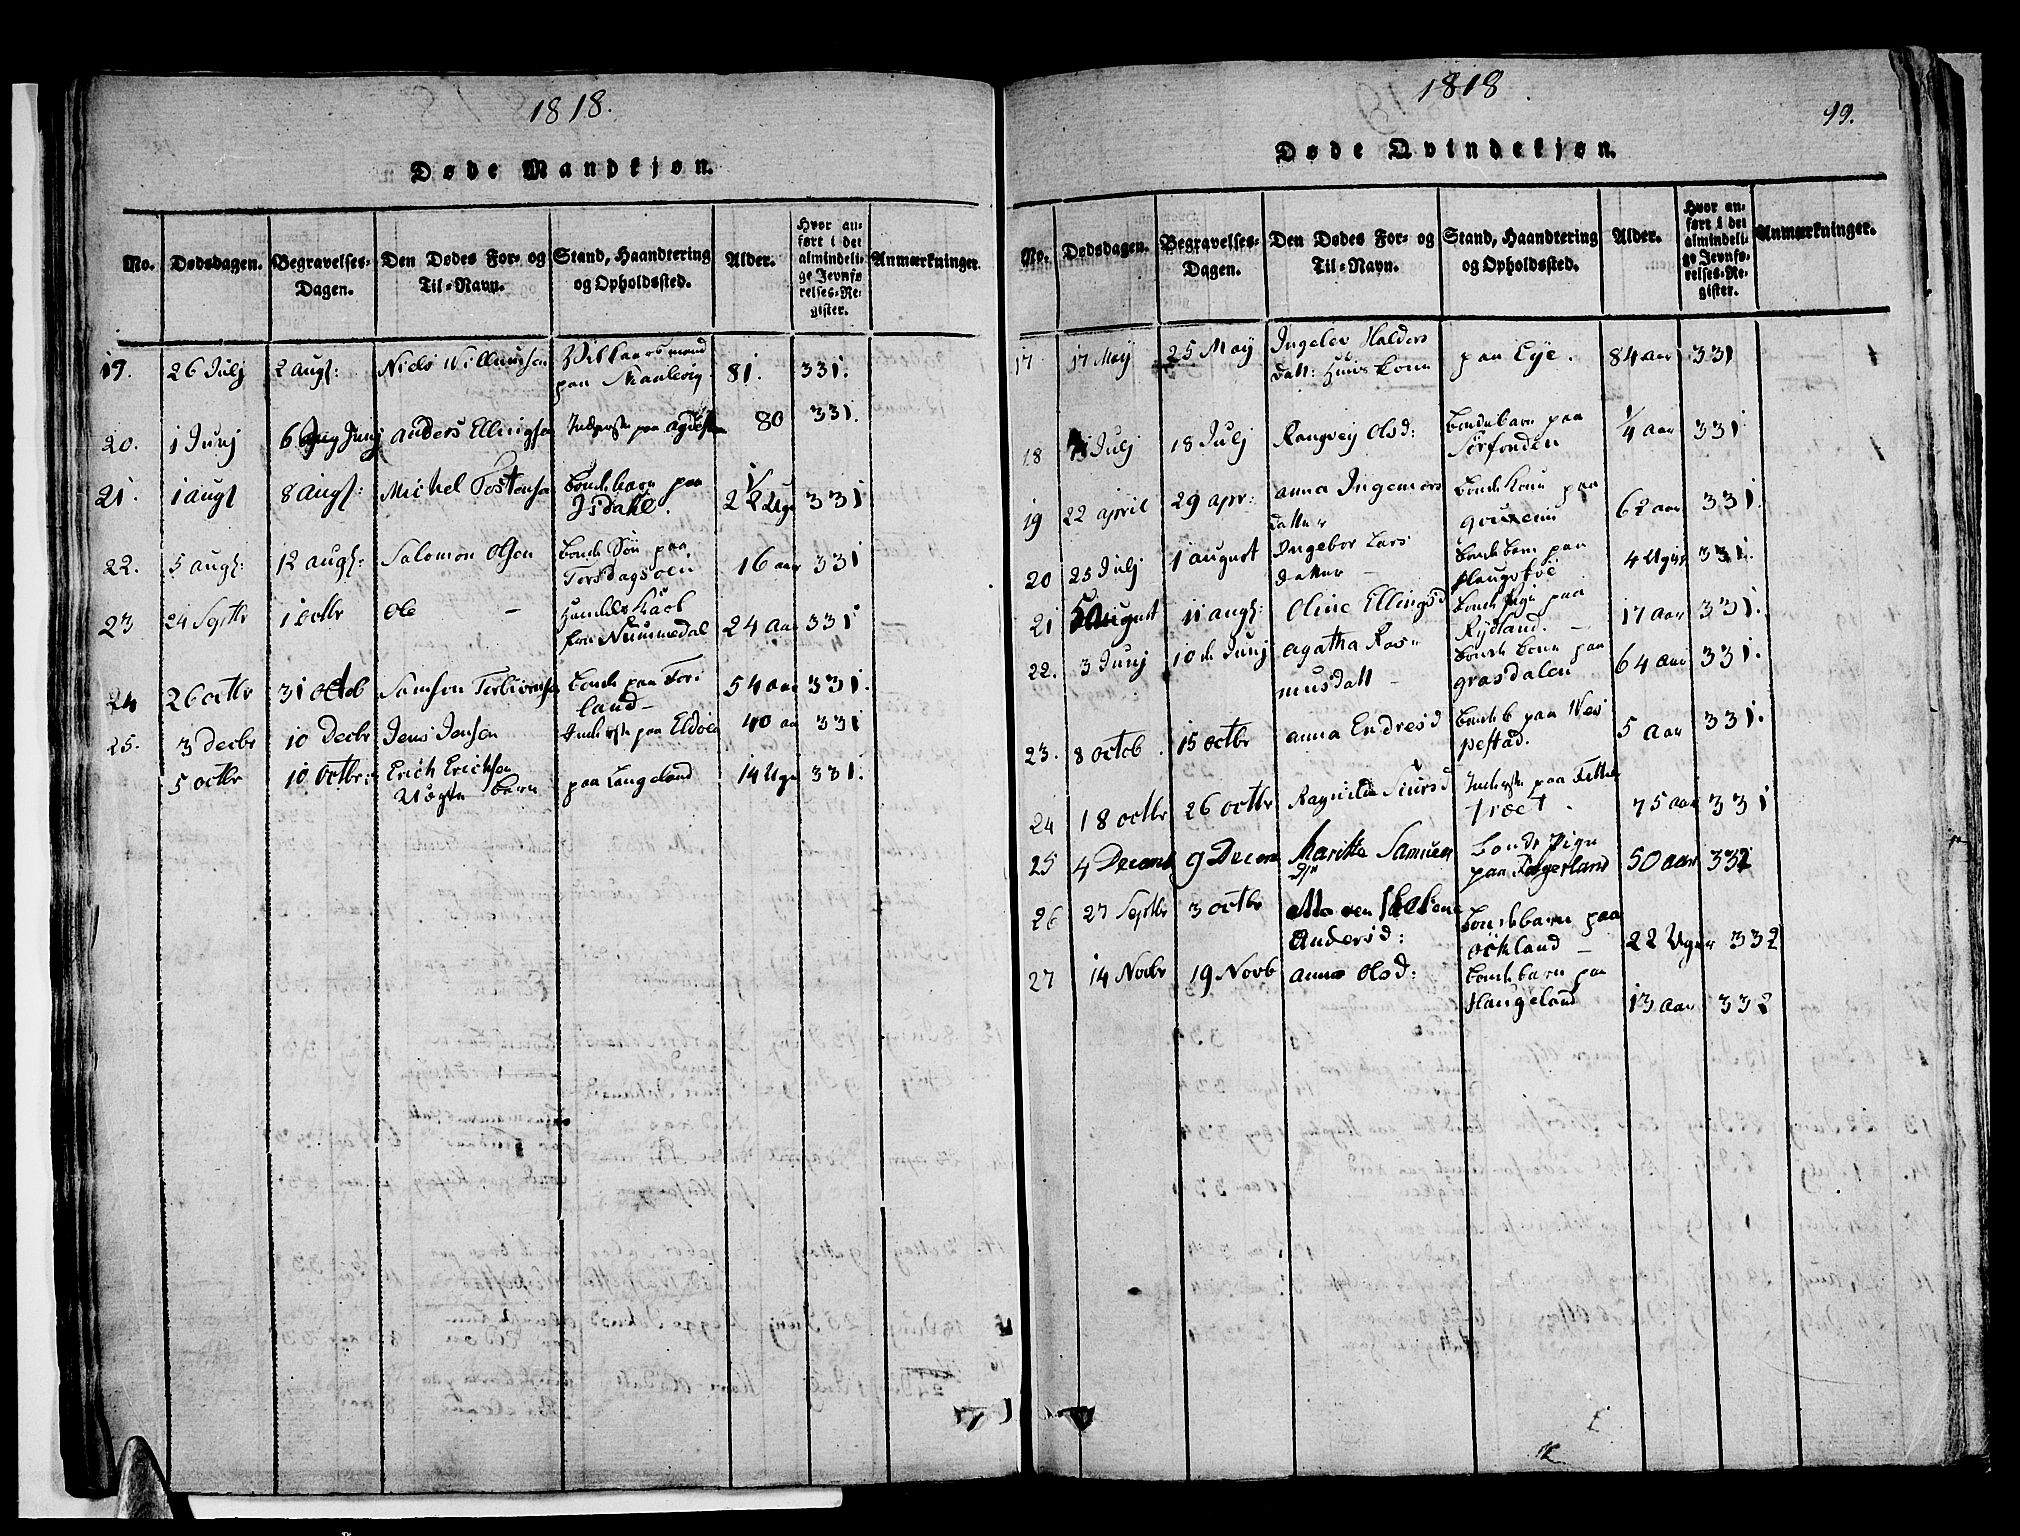 1818.
Døde Mandkjøn.
No.
Dødsdagen.
Begravelses-
Dagen.
Den Dødes For- og
Til-Navn.
Stand, Haandtering
og Opholdssted.
Alder.
Hvor an-
ført i det
almindeli-
ge Jevnfø-
relses-Re-
gister.
Anmærkninger.
19. 26 Julj 2 Augs: Niels Willumsen
paa Skaalevig 81. 331.
20. 1 Junj 6 Junj Anders Ellingsen paa 80 331
21. 1 augs 8 augs: Michel Tostensen bondebarn paa
Isdahl. 2 1/2 Uge 331
22. 5 augs: 12 augs: Salomon Olsen bonde Søn paa
Torsdagsøen 16 aar 331
23 24 Septbr 1 octbr Ole —
Nummedal 24 aar 331
24 26 octbr 31 octob Samson Torbiørnsen bonde paa Føri
land — 54 aar 331.
25. 3 Decbr 10 Decbr Jens Jensen paa 40 aar 331
5 octbr 10 octbr: Erich Erichsen
Uægte barn paa Langeland 14 Uger 331.
1818
99.
Døde Qvindekjøn.
No.
Dødsdagen.
Begravelses-
Dagen.
Den Dødes For- og
Til-Navn.
Stand, Haandtering
og Opholdssted.
Alder.
Hvor an-
ført i det
almindeli-
ge Jevnfø-
relses-Re-
gister.
Anmærkninger.
17 17 May 25 May Ingelev Halders
datt: Huus kone paa Eye. 84 aar 331
18 13 Julj 18 Julj Rangvey Olsd: bondebarn paa
Sørfonden 1/4 aar 331
19 22 april 29 apr: anna Ingemers
datter bonde kone paa
62 aar 331.
20 25 Julj 1 august Ingebor Lars
datter — bonde barn paa
4 Uger 331.
21 5 August 11 augs: Oline Ellingsd bonde pige paa
Rydland. — 17 aar 331.
22. 3 Junj 10 de Junj agatha Ras-
musdatt — bonde kone paa
grasdalen 64 aar 331.
23. 8 octob 15 octbr anna Endresd bonde b paa Ves
pestad. 5 aar 331.
24 18 octbr 26 octbr Ragnilda Siursd paa
træet. 75 aar 331
25 4 Decemb 9 Decem Maritte Samuels
ds bonde Pige
paa Fagerland 50 aar 332
26 27 Septbr 3 octbr
Andersd: bondebarn paa
Økland — 22 Uger 332
27 14 Novbr 19 Novb anna Olsd: bondebarn paa
Haugeland 13 aar 332